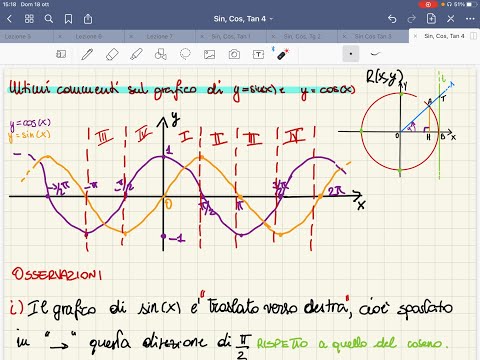 15:18 Dom 18 ott
51%
Sin, Cos, Tan 4
Lezione 5
Lezione 6
Lezione 7
Sin, Cos, Tan
Sin, Cos, Tg 2
Sin Cos Tan 3
Sin, Cos, Tan 4
Ultimi commenti sul grafico di y=sin(x) e y=cos(x)
R(x,y)
y=cos(x)
y=sin(x)
III IV I II III IV
y
1
-π -π/2 0 π/2 π 2π x
-1
A T
O α H B x
t
OSSERVAZIONI
i) Il grafico di sin(x) è "traslato verso destra", cioè spostato
in "→" questa direzione di π/2 RISPETTO a quello del coseno.